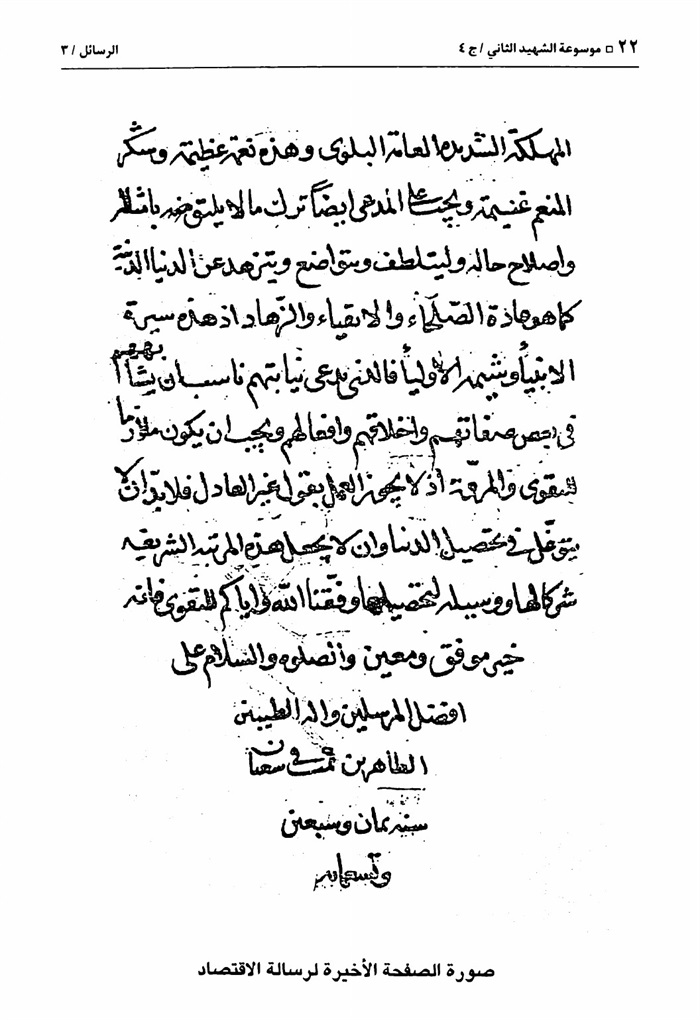 ٢٢ □ موسوعة الشهيد الثاني / ج ٤
الرسائل / ٣
المهلكة الشديدة العامة البلوى وهذه نعمة عظيمة وشكر
المنعم غنيمة ويجب على المدعى ايضاً ترك ما لا يليق
واصلاح حاله وليتلطف ويتواضع ويتزهد عن الدنيا الدنية
كما هو عادة الصلحاء والاتقياء والزهاد اذ هذه سيرة
الانبيأ وشيمة الاوليأ فالذى يدعى نيابتهم ناسب ان يتشبه بهم
فى بعض صفاتهم واخلاقهم وافعالهم ويجب ان يكون ملازما
للتقوى والمروة اذ لا يجوز العمل بقول غير العادل فلا بد ان لا
يتوغل فى تحصيل الدنيا وان لا يجعل هذه المرتبة الشريفة
شركا لها ووسيلة لتحصيلها وفقنا الله واياكم للتقوى فانه
خير موفق ومعين والصلوة والسلام على
افضل المرسلين واله الطيبين
الطاهرين تمت فى شعبان
سنة ثمان وسبعين
وتسعمايه
صورة الصفحة الأخيرة لرسالة الاقتصاد